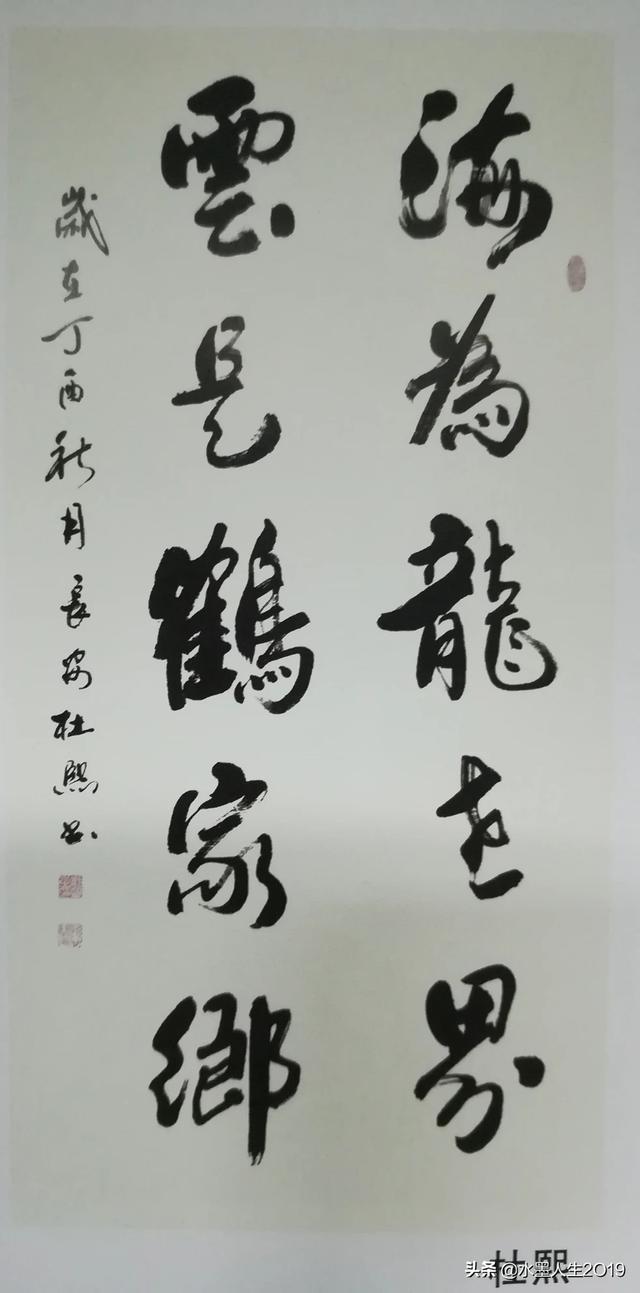 海為龍世界
雲是鶴家鄉
歲在丁酉秋月長安杜熙書
杜熙
头条 @水墨人生2019